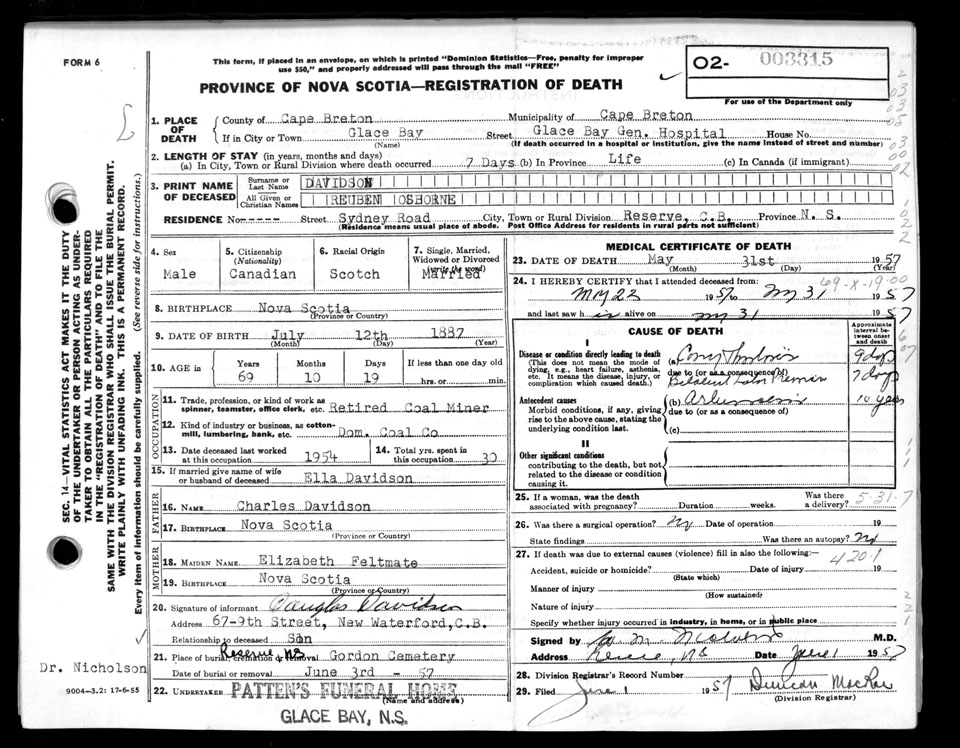 FORM 6
This form, if placed in an envelope, on which is printed "Dominion Statistics—Free, penalty for improper
use $50," and properly addressed will pass through the mail "FREE"
PROVINCE OF NOVA SCOTIA—REGISTRATION OF DEATH
02- 003315
For use of the Department only
1. PLACE OF DEATH
County of Cape Breton Municipality of Cape Breton
If in City or Town Glace Bay Street Glace Bay Gen. Hospital House No.
(Name) (If death occurred in a hospital or institution, give the name instead of street and number)
2. LENGTH OF STAY (in years, months and days)
(a) In City, Town or Rural Division where death occurred 7 Days (b) In Province Life (c) In Canada (if immigrant)
3. PRINT NAME OF DECEASED
Surname or Last Name DAVIDSON
All Given or Christian Names REUBEN OSBORNE
RESIDENCE No ----- Street Sydney Road City, Town or Rural Division Reserve, C.B. Province N. S.
(Residence means usual place of abode. Post Office Address for residents in rural parts not sufficient)
4. Sex
Male
5. Citizenship (Nationality)
Canadian
6. Racial Origin
Scotch
7. Single, Married, Widowed or Divorced (write the word)
Married
8. BIRTHPLACE Nova Scotia
(Province or Country)
9. DATE OF BIRTH July 12th 1887
(Month) (Day) (Year)
10. AGE in
Years 69
Months 10
Days 19
If less than one day old
hrs. or min.
OCCUPATION
11. Trade, profession, or kind of work as
spinner, teamster, office clerk, etc. Retired Coal Miner
12. Kind of industry or business, as cotton-
mill, lumbering, bank, etc. Dom. Coal Co
13. Date deceased last worked
at this occupation 1954
14. Total yrs. spent in
this occupation 30
15. If married give name of wife
or husband of deceased Ella Davidson
FATHER
16. NAME Charles Davidson
17. BIRTHPLACE Nova Scotia
(Province or Country)
MOTHER
18. MAIDEN NAME Elizabeth Feltmate
19. BIRTHPLACE Nova Scotia
(Province or Country)
20. Signature of informant Douglas Davidson
Address 67-9th Street, New Waterford, C.B.
Relationship to deceased Son
21. Place of burial, cremation or removal Reserve, NS Gordon Cemetery
Date of burial or removal June 3rd - 57
22. UNDERTAKER PATTEN'S FUNERAL HOME
(Name and address)
GLACE BAY, N.S.
Dr. Nicholson
9004-3.2: 17-6-55
SEC. 14—VITAL STATISTICS ACT MAKES IT THE DUTY
OF THE UNDERTAKER OR PERSON ACTING AS UNDER-
TAKER TO OBTAIN ALL THE PARTICULARS REQUIRED
IN THE "REGISTRATION OF DEATH" AND TO FILE THE
SAME WITH THE DIVISION REGISTRAR WHO SHALL ISSUE THE BURIAL PERMIT.
WRITE PLAINLY WITH UNFADING INK. THIS IS A PERMANENT RECORD.
Every item of information should be carefully supplied. (See reverse side for instructions.)
MEDICAL CERTIFICATE OF DEATH
23. DATE OF DEATH May 31st 1957
(Month) (Day) (Year)
24. I HEREBY CERTIFY that I attended deceased from: 69-X-19-00
My 22 1957 to My 31 1957
and last saw h is alive on my 31 1957
CAUSE OF DEATH
Approximate interval between onset and death
I
Disease or condition directly leading to death
(This does not mean the mode of dying, e.g., heart failure, asthenia, etc. It means the disease, injury, or complication which caused death.)
(a) 9 days
due to (or as a consequence of)
7 days
Antecedent causes
Morbid conditions, if any, giving rise to the above cause, stating the underlying condition last.
(b) 10 years
due to (or as a consequence of)
(c)
II
Other significant conditions
contributing to the death, but not related to the disease or condition causing it.
25. If a woman, was the death
associated with pregnancy? Duration weeks. Was there a delivery? 5-31-7
26. Was there a surgical operation? No Date of operation 19
State findings Was there an autopsy? No
27. If death was due to external causes (violence) fill in also the following:— 420.1
Accident, suicide or homicide? Date of injury 19
(State which)
Manner of injury
(How sustained)
Nature of injury
Specify whether injury occurred in industry, in home, or in public place
Signed by M.D.
Address Reserve, NS Date June 1 1957
28. Division Registrar's Record Number
29. Filed June 1 1957 Duncan MacRae
(Division Registrar)